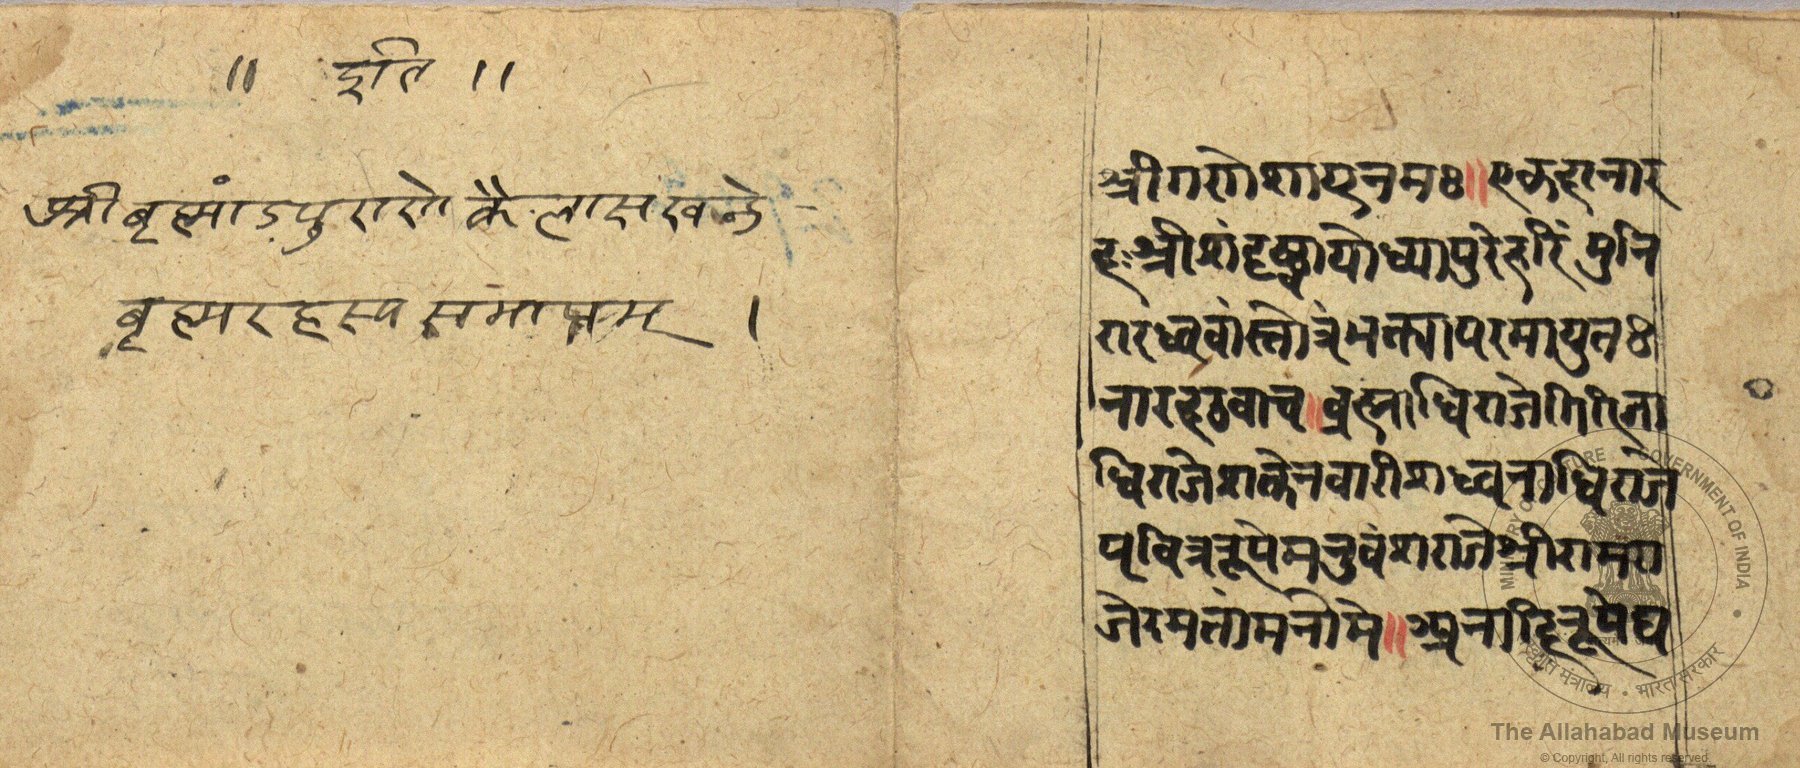 ॥ इति ॥
श्री बृह्मांडपुराणे कैलासखण्डे
बृह्मरहस्य समाप्तम् ।
श्रीगणेशायनमः॥एकदानार
दःश्रीशंदृष्ट्वायोध्यापुरेहरिं पुनि
राराध्यवांस्तोत्रंभक्त्यापरमायुतः
नारदउवाच॥ब्रह्माधिराजेगिरिजा
धिराजेशक्तेनवारीशधनाधिराजे
पवित्ररूपेमनुवंशराजेश्रीरामरा
जेरमतांमनोमे॥अनादिरूपेद्य
MINISTRY OF CULTURE GOVERNMENT OF INDIA
संस्कृति मंत्रालय • भारत सरकार
The Allahabad Museum
© Copyright, All rights reserved